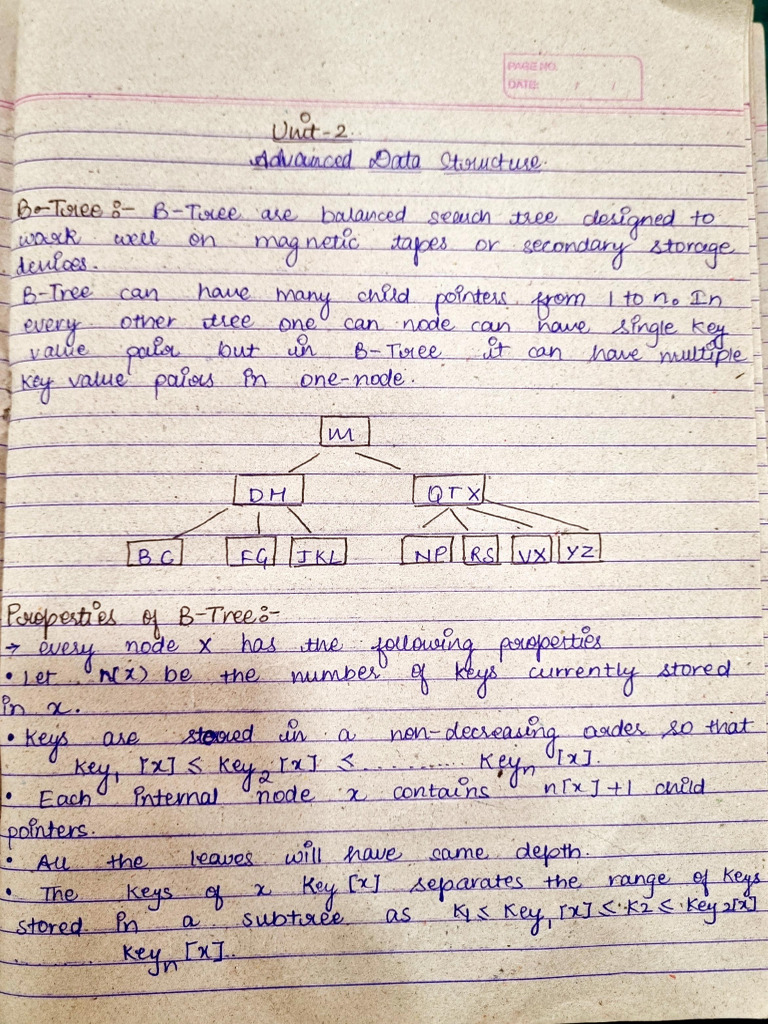 PAGE NO.
DATE: / /
Unit-2
Advanced Data Structure.
B-Tree :- B-Tree are balanced search tree designed to
work well on magnetic tapes or secondary storage
devices.
B-Tree can have many child pointers from 1 to n. In
every other tree one can node can have single key
value pair but in B-Tree it can have multiple
key value pairs in one-node.
M
DH QTX
BC FG JKL NP RS VX YZ
Properties of B-Tree:-
→ every node x has the following properties
• Let n(x) be the number of keys currently stored
in x.
• Keys are stored in a non-decreasing order so that
Key₁ [x] ≤ Key₂ [x] ≤ .......... Keyₙ [x].
• Each internal node x contains n[x]+1 child
pointers.
• All the leaves will have same depth.
• The keys of x Key [x] separates the range of keys
stored in a subtree as K1 ≤ Key₁ [x] ≤ K2 ≤ Key2[x]
.. ...... Keyₙ [x]..